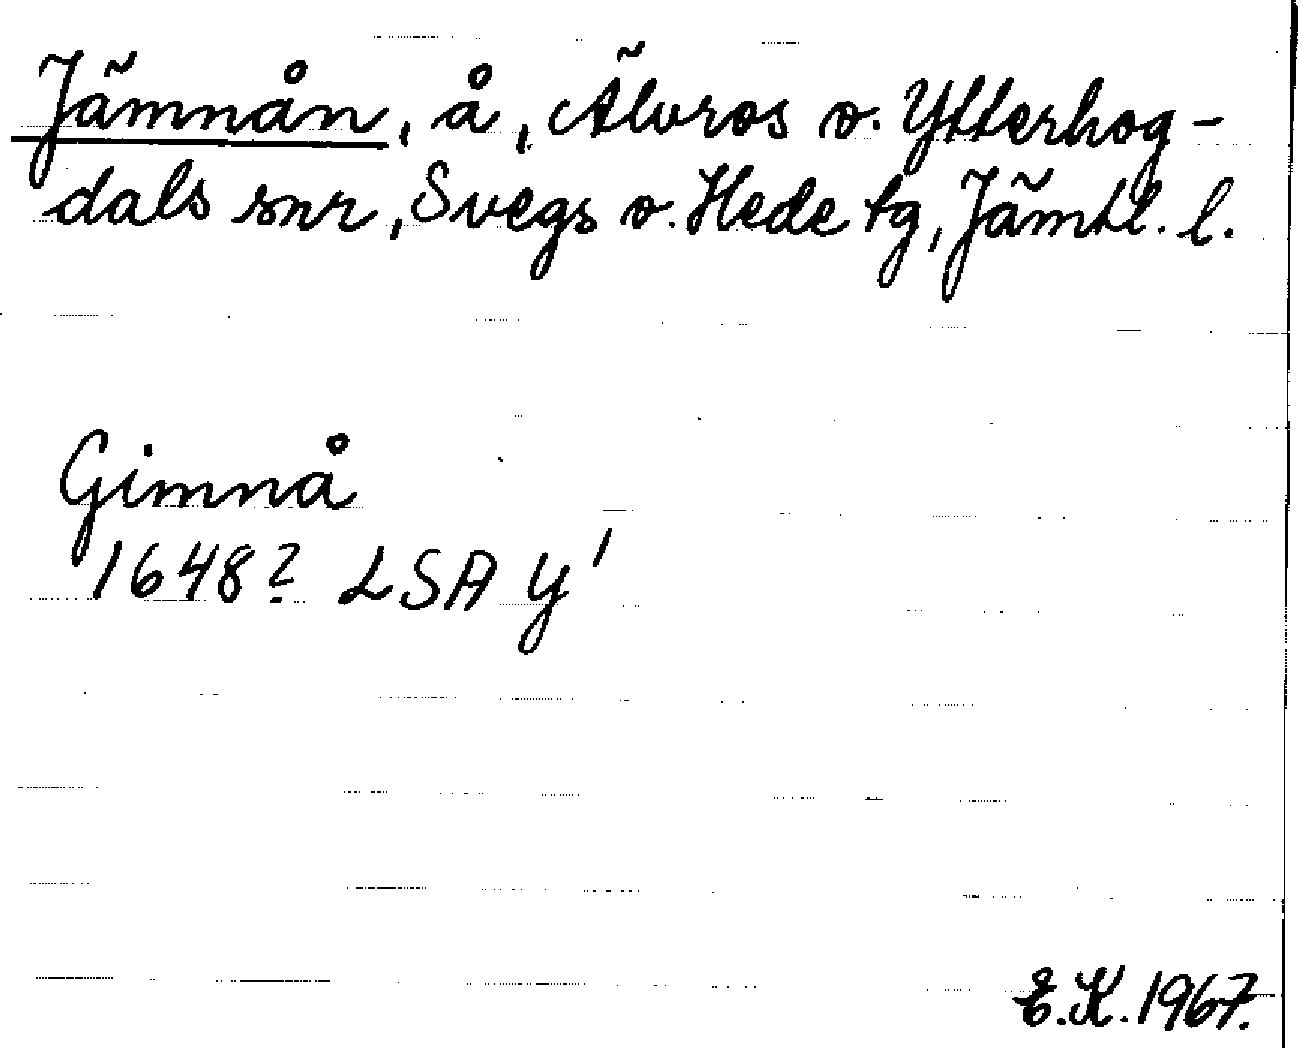 Jämnån, å, Älvros o. Ytterhog-
dals snr, Svegs o. Hede tg, Jämtl. l.
Gimnå
1648? LSA Y'
E.K. 1967.